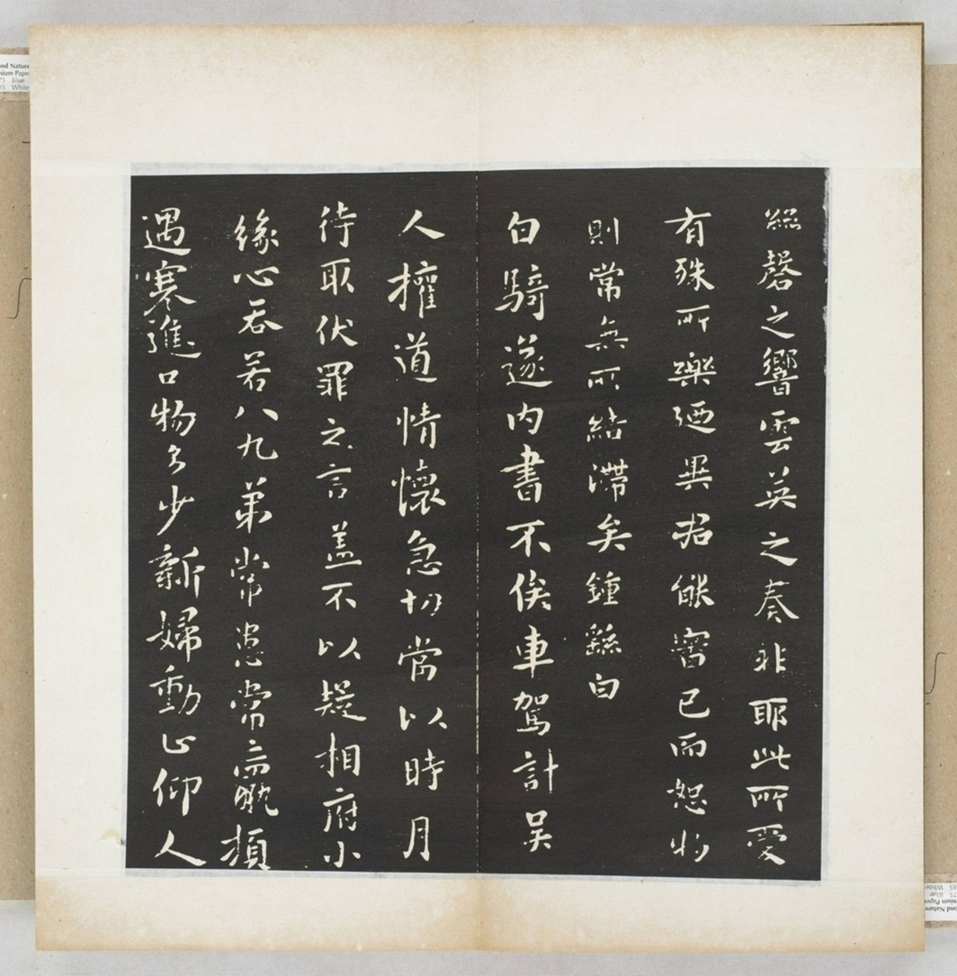 絲磬之響雲英之奏非耶此所愛
有殊所樂迺異君能審已而恕物
則常無所結滯矣鍾繇白
白騎遂内書不俟車駕計吳
人權道情懷急切當以時月
待取伏罪之言盖不以疑相府小
緣心吞若八九弟常患常羸頓
遇寒進口物多少新婦動止仰人